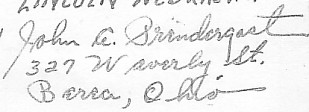 LINCOLN
John A. Prindergast
327 Waverly St.
Berea, Ohio